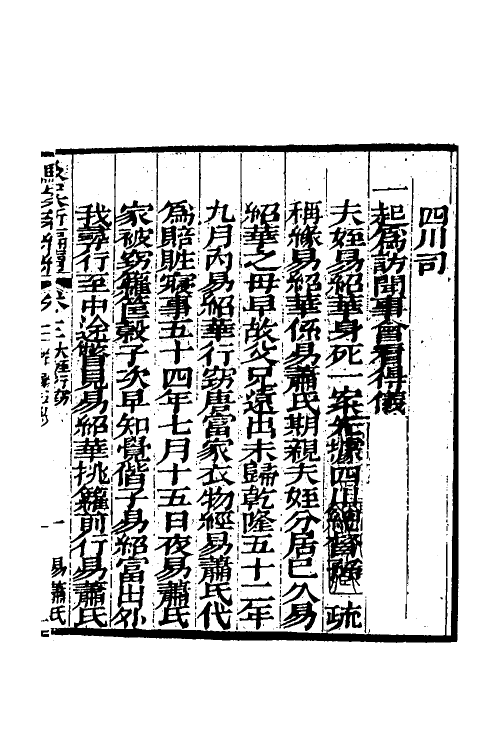 四川司
一起爲訪聞事會看得儀
夫姪易紹華身死一案先據四川總督 疏
稱緣易紹華係易蕭氏期親夫姪分居已久易
紹華之母早故父兄遠出未歸乾隆五十二年
九月內易紹華行竊唐富家衣物經易蕭氏代
爲賠贓寢事五十四年七月十五日夜易蕭氏
家被竊籮筐穀子次早知覺偕子易紹富出外
找尋行至中途瞥見易紹華挑籮前行易蕭氏
易蕭氏